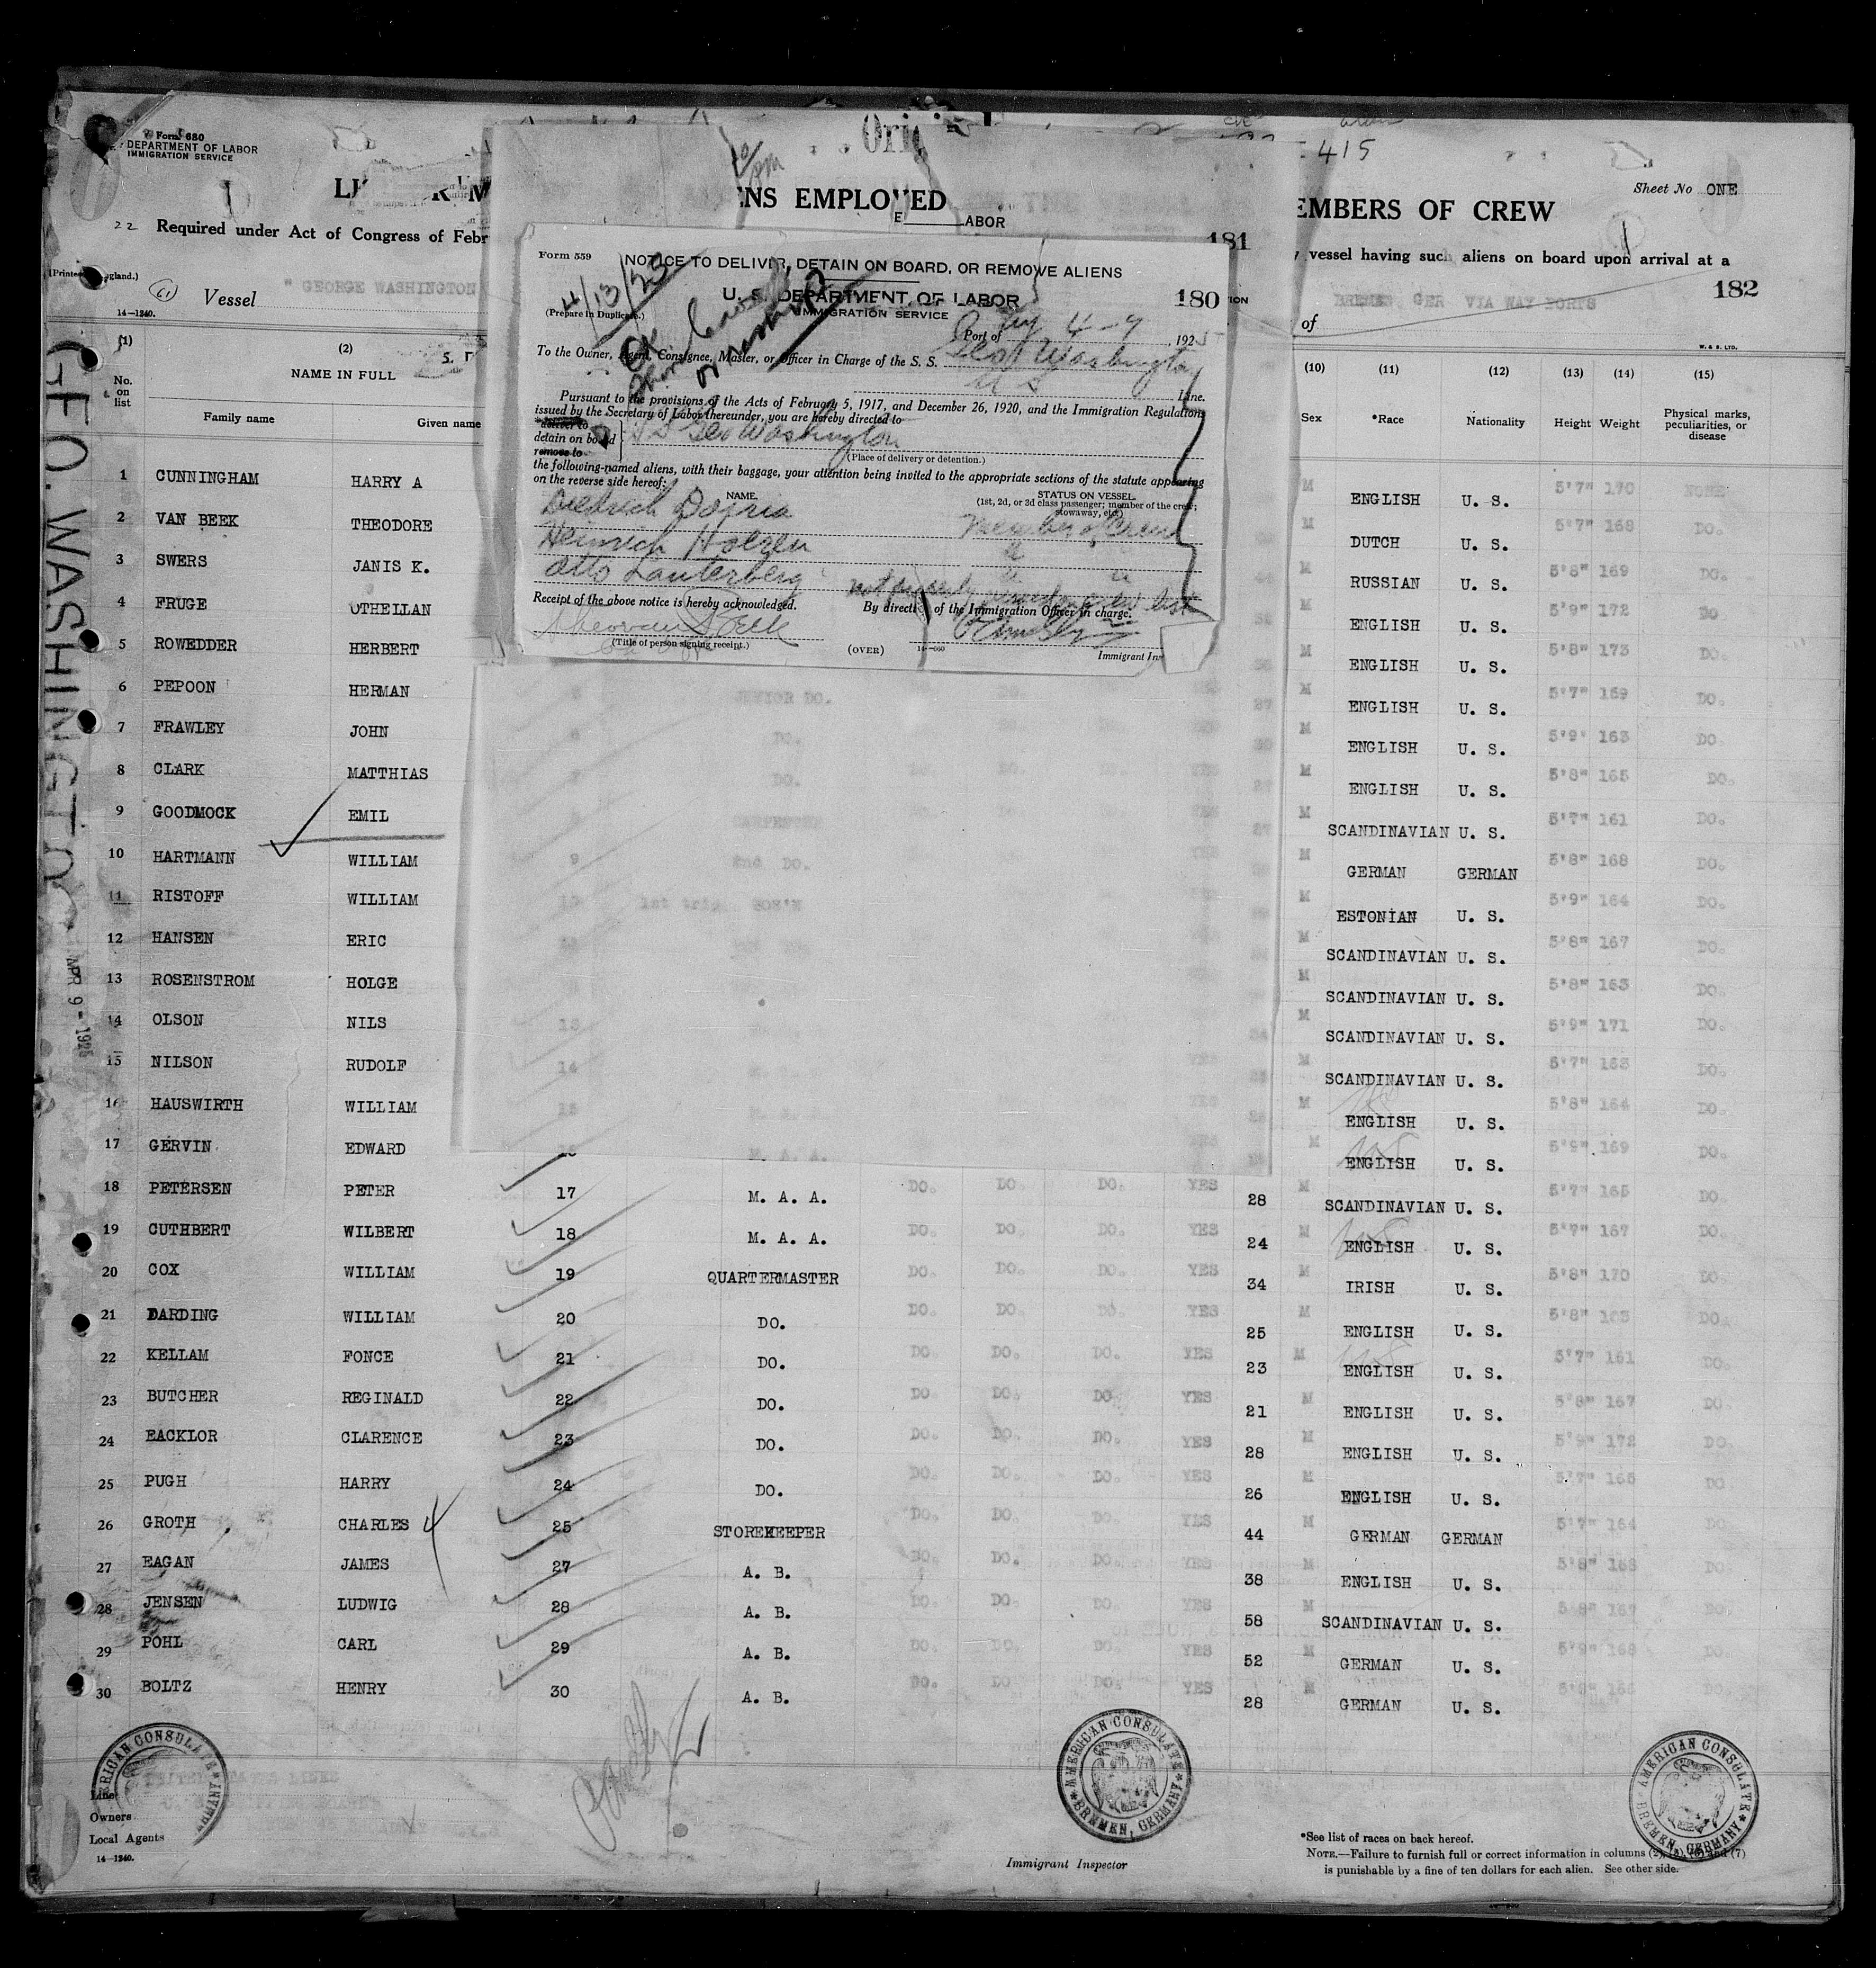 Orig
415
Form 680
DEPARTMENT OF LABOR
IMMIGRATION SERVICE
Sheet No ONE
NS EMPLOYED
EMBERS OF CREW
E LABOR
181
22 Required under Act of Congress of Febr
vessel having such aliens on board upon arrival at a
182
61 Vessel " GEORGE WASHINGTON
14—1240.
BREMEN GER VIA WAY PORTS
of
W. & S. LTD.
Form 559
NOTICE TO DELIVER, DETAIN ON BOARD, OR REMOVE ALIENS
4/13/25
U. S. DEPARTMENT OF LABOR
180
(Prepare in Duplicate.)
IMMIGRATION SERVICE
Port of NY 4-9, 1925
To the Owner, Agent, Consignee, Master, or Officer in Charge of the S. S. Geo Washington
U S Line.
Pursuant to the provisions of the Acts of February 5, 1917, and December 26, 1920, and the Immigration Regulations
issued by the Secretary of Labor thereunder, you are hereby directed to
deliver to
detain on board SS Geo Washington
remove to
(Place of delivery or detention.)
the following-named aliens, with their baggage, your attention being invited to the appropriate sections of the statute appearing
on the reverse side hereof:
NAME.
STATUS ON VESSEL
(1st, 2d, or 3d class passenger; member of the crew; stowaway, etc.)
Diedrich
Member of Crew
Heinrich Holzen
Otto Lauterberg
Receipt of the above notice is hereby acknowledged.
By direction of the Immigration Officer in charge.
(Title of person signing receipt.)
(OVER)
14—660
Immigrant Ins
GEO. WASHINGTON
APR 9 - 1925
(1) (2) (10) (11) (12) (13) (14) (15)
No. on list
NAME IN FULL
Family name Given name
Sex *Race Nationality Height Weight Physical marks, peculiarities, or disease
1 CUNNINGHAM HARRY A M ENGLISH U. S. 5'7" 170 NONE
2 VAN BEEK THEODORE M DUTCH U. S. 5'7" 168 DO.
3 SWERS JANIS K. M RUSSIAN U. S. 5'8" 169 DO.
4 FRUGE OTHELLAN M ENGLISH U. S. 5'9" 172 DO
5 ROWEDDER HERBERT M ENGLISH U. S. 5'8" 173 DO.
6 PEPOON HERMAN JUNIOR DO. M ENGLISH U. S. 5'7" 159 DO.
7 FRAWLEY JOHN DO. M ENGLISH U. S. 5'9" 163 DO.
8 CLARK MATTHIAS DO. M ENGLISH U. S. 5'8" 165 DO.
9 GOODMOCK EMIL CARPENTER M SCANDINAVIAN U. S. 5'7" 161 DO.
10 HARTMANN WILLIAM 9 2nd DO. M GERMAN GERMAN 5'8" 168 DO.
11 RISTOFF WILLIAM 10 1st trip BOS'N M ESTONIAN U. S. 5'9" 164 DO.
12 HANSEN ERIC M SCANDINAVIAN U. S. 5'8" 167 DO.
13 ROSENSTROM HOLGE M SCANDINAVIAN U. S. 5'8" 163 DO.
14 OLSON NILS 13 M SCANDINAVIAN U. S. 5'9" 171 DO.
15 NILSON RUDOLF 14 M SCANDINAVIAN U. S. 5'7" 163 DO.
16 HAUSWIRTH WILLIAM 15 M ENGLISH U. S. 5'8" 164 DO.
17 GERVIN EDWARD M. A. A. M ENGLISH U. S. 5'9" 169 DO.
18 PETERSEN PETER 17 M. A. A. DO. DO. DO. YES 28 M SCANDINAVIAN U. S. 5'7" 165 DO.
19 CUTHBERT WILBERT 18 M. A. A. DO. DO. DO. YES 24 M ENGLISH U. S. 5'7" 167 DO.
20 COX WILLIAM 19 QUARTERMASTER DO. DO. DO. YES 34 M IRISH U. S. 5'8" 170 DO.
21 DARDING WILLIAM 20 DO. DO. DO. DO. YES 25 M ENGLISH U. S. 5'8" 163 DO.
22 KELLAM FONCE 21 DO. DO DO. DO. YES 23 M ENGLISH U. S. 5'7" 161 DO.
23 BUTCHER REGINALD 22 DO. DO DO. DO YES 21 M ENGLISH U. S. 5'8" 167 DO.
24 EACKLOR CLARENCE 23 DO. DO. DO. DO. YES 28 M ENGLISH U. S. 5'9" 172 DO.
25 PUGH HARRY 24 DO. DO. DO. DO. YES 26 M ENGLISH U. S. 5'7" 165 DO
26 GROTH CHARLES 25 STOREKEEPER DO. DO. DO. YES 44 M GERMAN GERMAN 5'7" 164 DO
27 EAGAN JAMES 27 A. B. DO. DO. DO. YES 38 M ENGLISH U. S. 5'8" 163 DO.
28 JENSEN LUDWIG 28 A. B. DO. DO DO. YES 58 M SCANDINAVIAN U. S. 5'8" 167 DO.
29 POHL CARL 29 A. B. DO. DO. DO. YES 52 M GERMAN U. S. 5'9" 168 DO.
30 BOLTZ HENRY 30 A. B. DO. DO DO. YES 28 M GERMAN U. S. 5'8" 166 DO.
AMERICAN CONSULATE
AMERICAN CONSULATE BREMEN, GERMANY
AMERICAN CONSULATE BREMEN, GERMANY
Line
Owners
Local Agents
14—1240.
Immigrant Inspector
*See list of races on back hereof.
NOTE.—Failure to furnish full or correct information in columns (2), (5), (6) and (7)
is punishable by a fine of ten dollars for each alien. See other side.